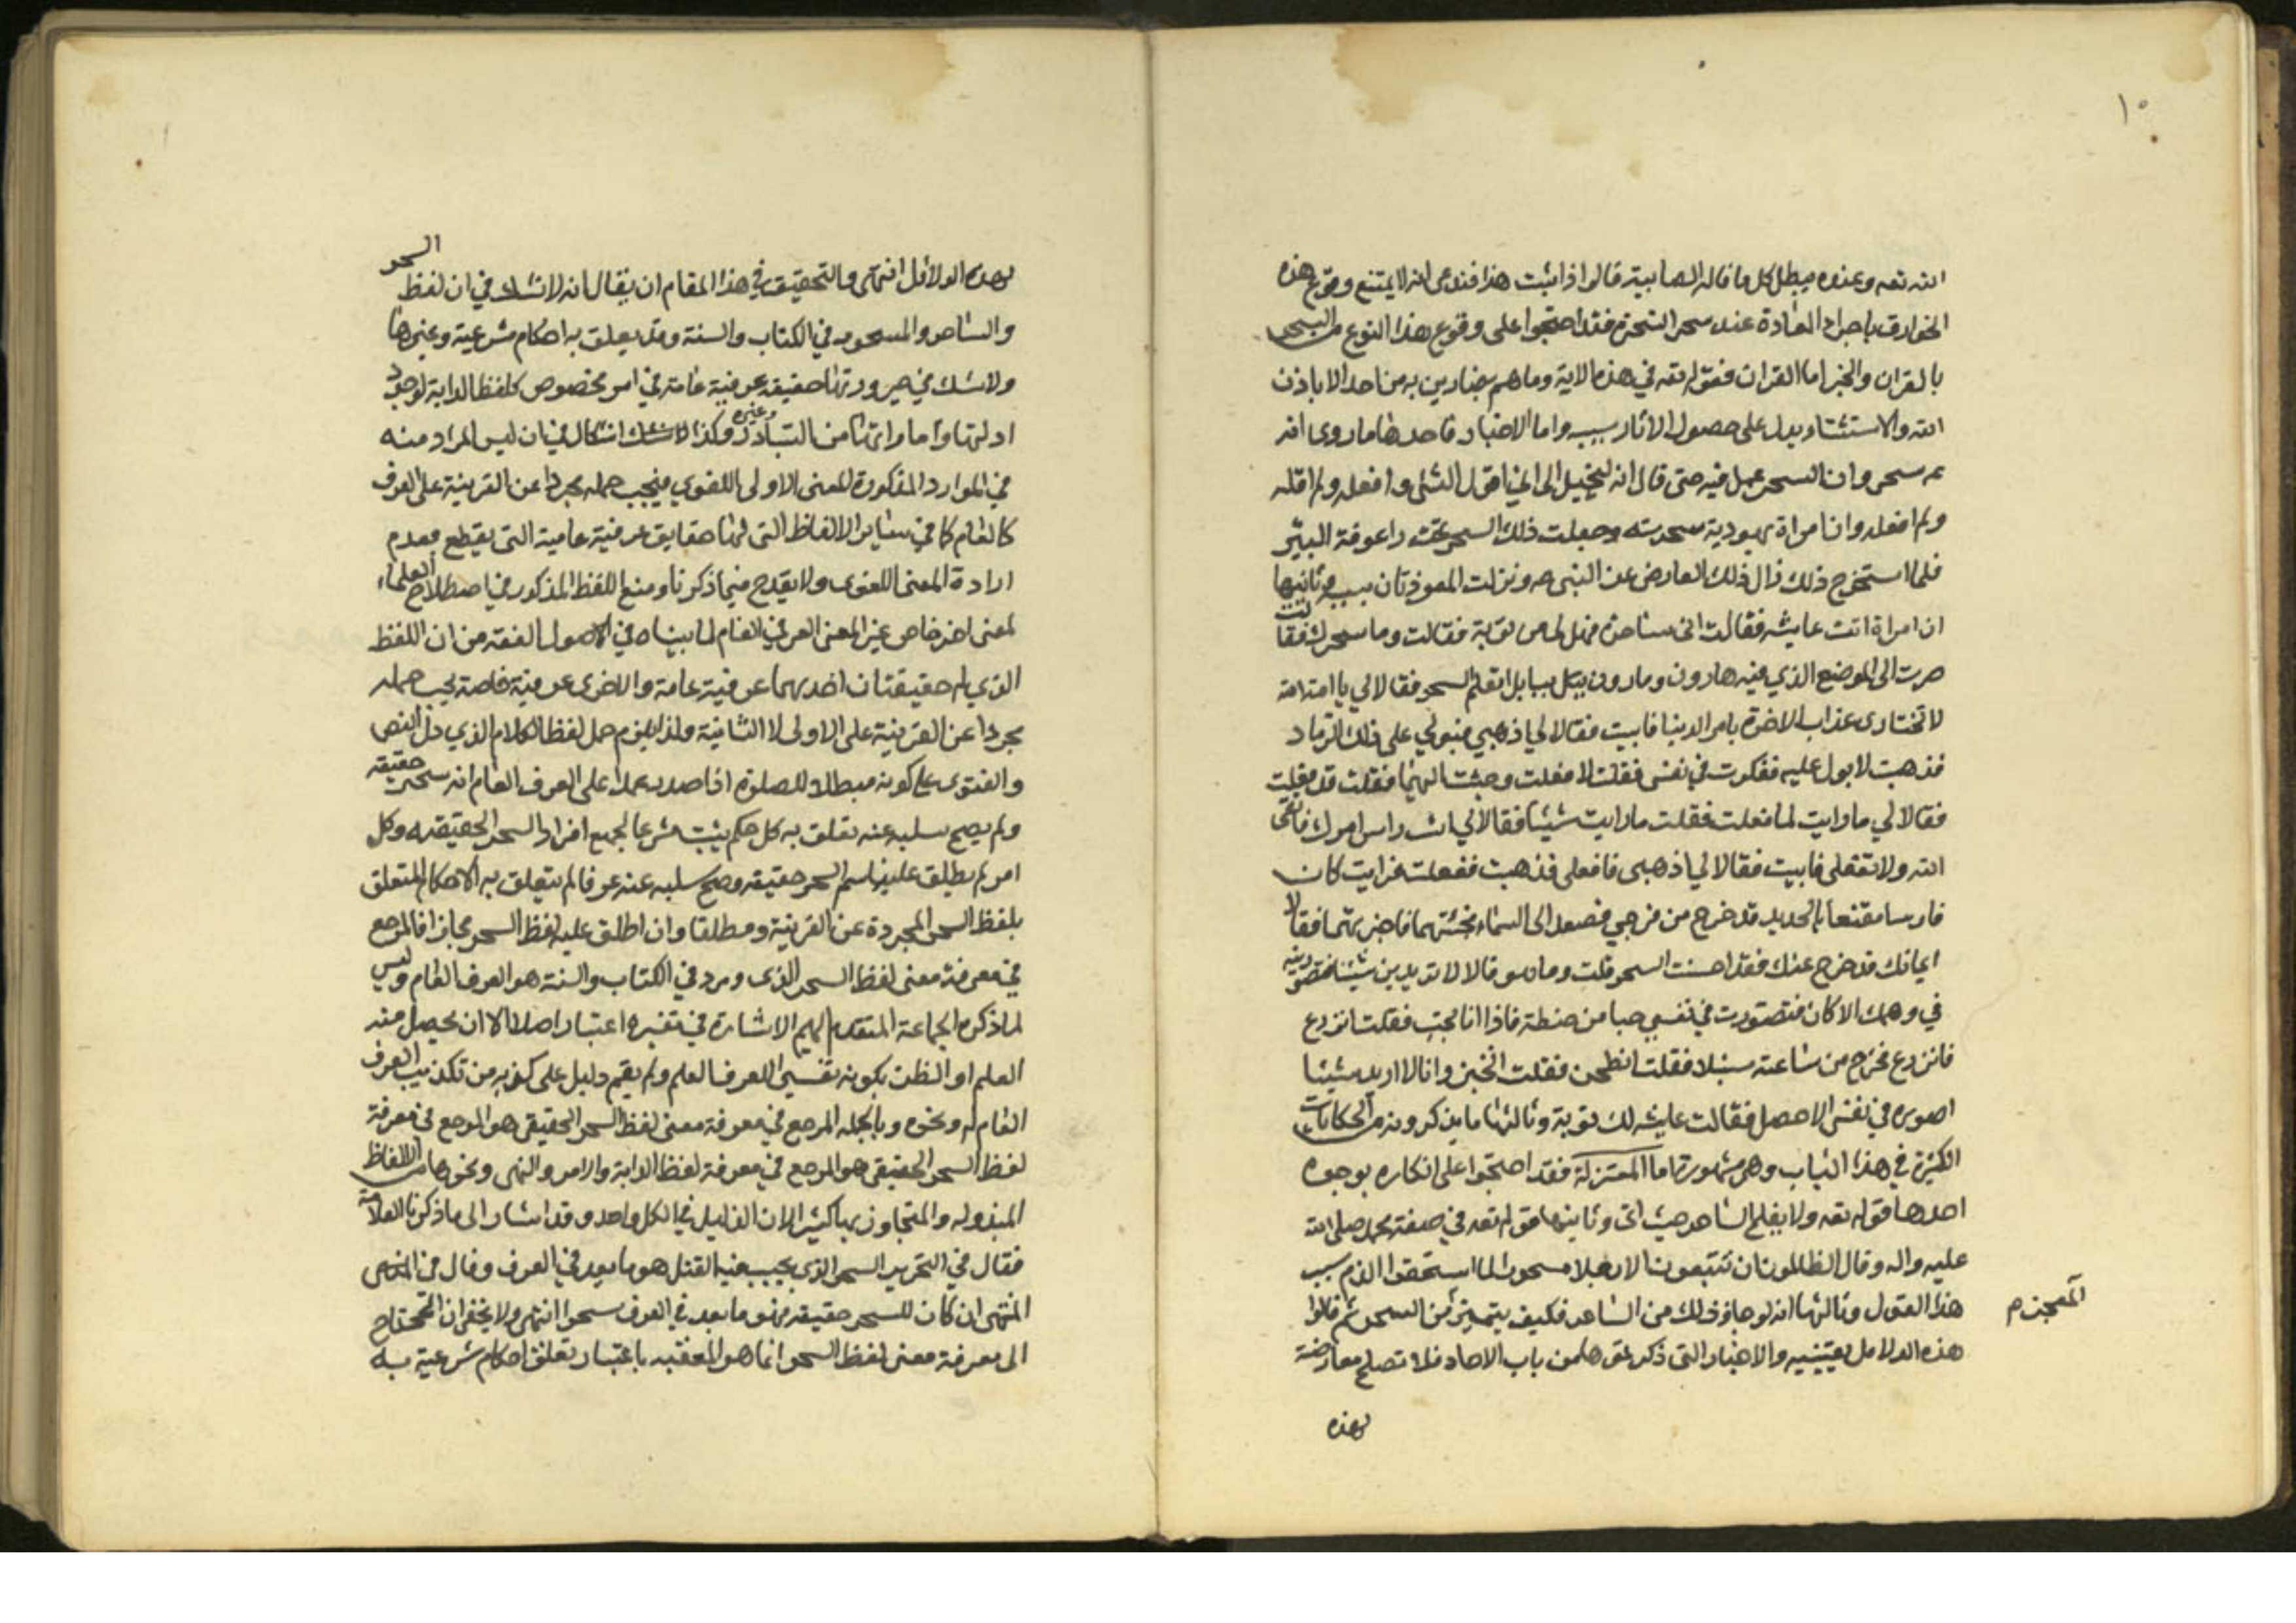 ١٥
الله تعه وعنده يبطل كل ما قاله الصابية قالوا اذا ثبت هذا فندعى انه لا يمتنع وقوع هذه
الخوارق باجراء العادة عند سحر السحرة فقد احتجوا على وقوع هذا النوع من السحر
بالقران والخبر اما القران فقوله تعه في هذه الاية وما هم بضارين به من احد الا باذن
الله والاستثناء يدل على حصول الاثار بسببه واما الاخبار فاحدها ما روى انه
عم سحر وان السحر عمل فيه حتى قال انه ليخيل الى اني اقول الشئ وافعله ولم اقله
ولم افعله وان امراة يهودية سحرته وجعلت ذلك السحر تحت راعوفة البئر
فلما استخرج ذلك زال ذلك العارض عن النبى صه ونزلت المعوذتان بسببه وثانيها
ان امراة اتت عايشه فقالت انى ساحرة فهل لى من توبة فقالت وما سحرك فقالت
صرت الى الموضع الذي فيه هاروت وماروت ببابل اتعلم السحر فقالا لي يا امة الله
لا تختارى عذاب الاخرة بامر الدنيا فابيت فقالا لي اذهبي فبولي على ذلك الرماد
فذهبت لابول عليه ففكرت في نفسى فقلت لا فعلت وجئت اليهما فقلت قد فعلت
فقالا لي ما رايت لما فعلت فقلت ما رايت شيئا فقالا لي انت راس امرك فاتقى
الله ولا تفعلى فابيت فقالا لي اذهبى فافعلى فذهبت ففعلت فرايت كان
فارسا مقنعا بالحديد قد خرج من فرجي فصعد الى السماء فجئتهما فاخبرتهما فقالا
ايمانك قد خرج عنك فقد احسنت السحر قلت وما هو قالا لا تريدين شيئا فتصورينه
في وهمك الا كان فتصورت في نفسي حبا من حنطة فاذا انا بحب فقلت انزرع
فانزرع فخرج من ساعته سنبلا فقلت انطحن فقلت انخبز وانا لا اريد شيئا
اصوره في نفسى الا حصل فقالت عايشه ليس لك توبة وثالثها ما يذكرونه من الحكايات
الكثيرة في هذا الباب وهى مشهورة اما المعتزلة فقد احتجوا على انكاره بوجوه
احدها قوله تعه ولا يفلح الساحر حيث اتى وثانيها قوله تعه في صفة محمد صلى الله
عليه واله وقال الظالمون ان تتبعون الا رجلا مسحورا لما استحقوا الذم بسبب
هذا القول وثالثها انه لو جاز ذلك من الساحر فكيف يتميز من السحر ثم قالوا
المعجز م
هذه الدلايل يقينيه والاخبار التى ذكرتموها من باب الاحاد فلا تصلح معارضة
لهذه
لهذه الدلائل انتهى والتحقيق في هذا المقام ان يقال انه لا شك في ان لفظ السحر
والساحر والمسحور في الكتاب والسنة وقد يعلق به احكام شرعية وغيرها
ولا شك في صيرورتها حقيقة عرفية عامة في امر مخصوص كلفظ الدابة لوجود
ادلتها واماراتها من التبادر وغيره وكذا لا اشكال في ان ليس المراد منه
في الموارد المذكورة المعنى الاولى اللغوي فيجب حمله مجردا عن القرينة على العرف
كالعام كما في ساير الالفاظ التى لها حقايق عرفية عامية التى يقطع بعدم
ارادة المعنى اللغوى ولا يقدح فيما ذكرنا وضع اللفظ المذكور في اصطلاح العلماء
لمعنى اخر خاص غير المعنى العرفي العام لما بيناه في الاصول الفقه من ان اللفظ
الذي له حقيقتان احديهما عرفية عامة والاخرى عرفية خاصة يجب حمله
مجردا عن القرينة على الاولى لا الثانية ولذا يلزم حمل لفظ الكلام الذي دل النص
والفتوى على كونه مبطلا للصلوة اذا صدر عمدا على العرف العام انه سحر حقيقة
ولم يصح سلبه عنه تعلق به كل حكم يثبت شرعا لجميع افراد السحر الحقيقيه وكل
امر لم يطلق عليه اسم السحر حقيقة وصح سلبه عنه عرفا لم يتعلق به الاحكام المتعلق
بلفظ السحر المجردة عن القرينة ومطلقا وان اطلق عليه لفظ السحر مجازا فالمرجع
في معرفة معنى لفظ السحر الذى ورد في الكتاب والسنة هو العرف العام وليس
لما ذكره الجماعة المتقدم اليهم الاشارة في تفسيره اعتبار اصلا الا ان يحصل منه
العلم او الظن بكونه تفسير العرف العلم ولم يقم دليل على كونه من تكذيب العرف
العام له ونحوه وبالجمله المرجع في معرفة معنى لفظ السحر الحقيقى هو المرجع في معرفة
لفظ السحر الحقيقى هو المرجع في معرفة لفظ الدابة والامر والنهى ونحوها من الالفاظ
المبذوله والمتجاوز بها كثيرا لان الدليل في الكل واحد وقد اشار الى ما ذكرنا العلامة
فقال في التحرير السحر الذى يجب فيه القتل هو ما يعد في العرف وقال في
المنتهى ان كان للسحر حقيقه فهو ما يعد في العرف سحرا انتهى ولا يخفى ان المحتاج
الى معرفة معنى لفظ السحر انما هو الفقيه باعتبار تعلق احكام شرعية به